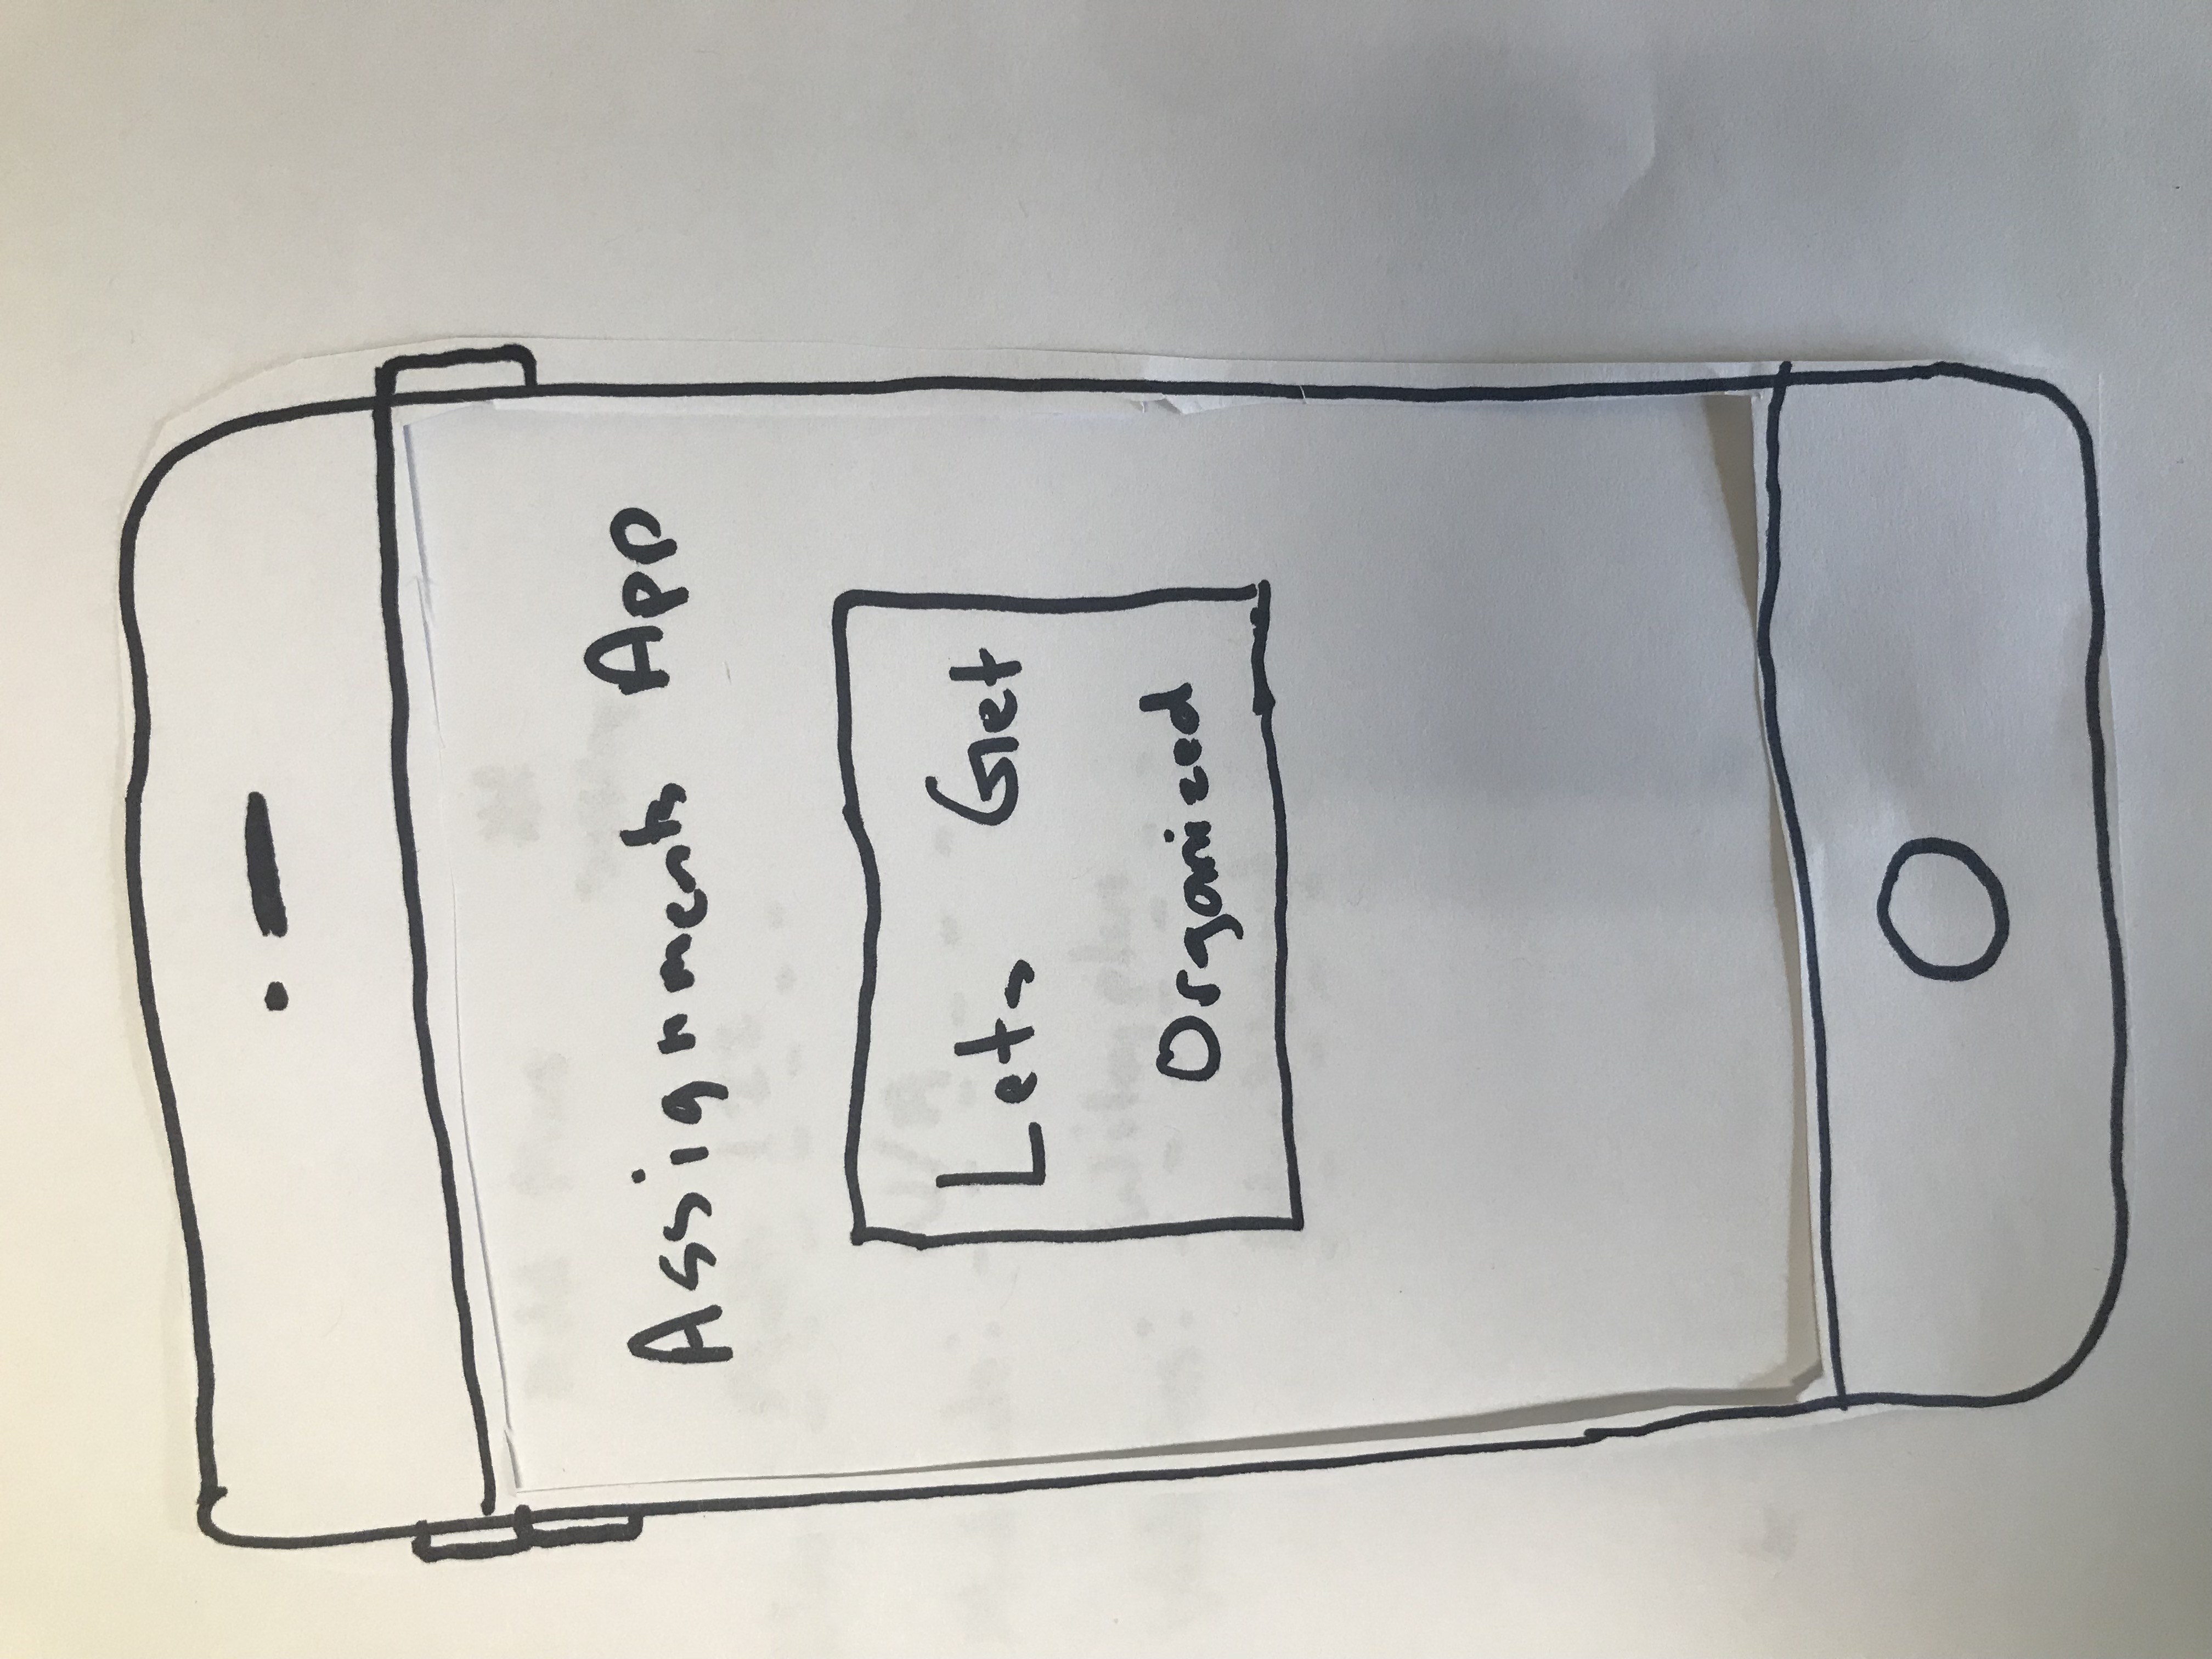 Assignments App
Lets Get
Organized